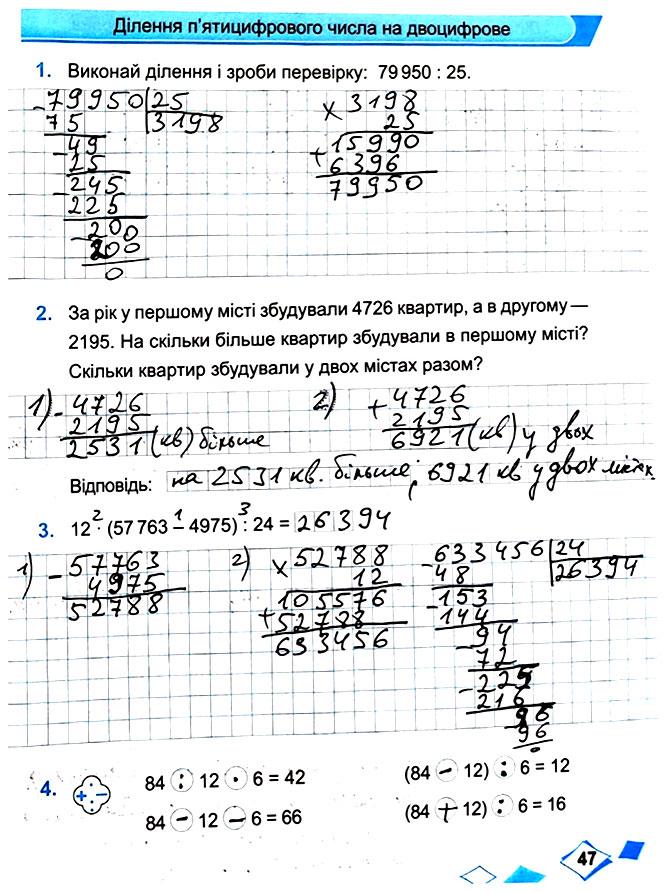 Ділення п'ятицифрового числа на двоцифрове
1. Виконай ділення і зроби перевірку: 79 950 : 25.
-79950 25
75 3198
-49
25
-245
225
-200
200
0
× 3198
25
+ 15990
6396
79950
2. За рік у першому місті збудували 4726 квартир, а в другому —
2195. На скільки більше квартир збудували в першому місті?
Скільки квартир збудували у двох містах разом?
1) - 4726
2195
2531 (кв) більше
2) + 4726
2195
6921 (кв) у двох
Відповідь: на 2531 кв. більше; 6921 кв у двох містах
2 1 3
3. 12 · (57 763 – 4975) : 24 = 26394
1) - 57763
4975
52788
2) × 52788
12
+ 105576
52788
633456
-633456 24
48 26394
-153
144
-94
72
-225
216
96
96
0
4. + · : -
84 : 12 · 6 = 42
(84 - 12) : 6 = 12
84 - 12 - 6 = 66
(84 + 12) : 6 = 16
47